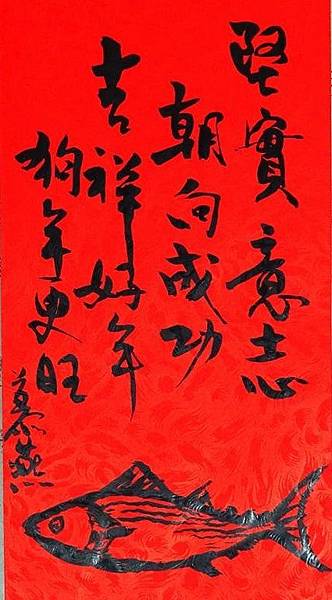 堅實意志
朝向成功
吉祥好年
狗年更旺
慕燕